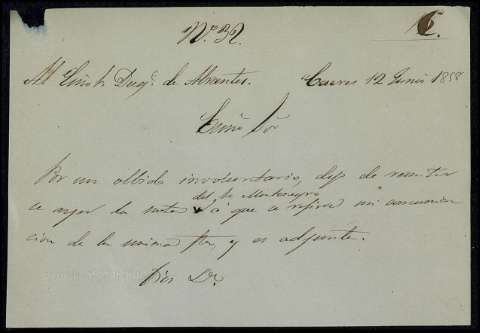 Nº 32.
Al Exmo Sr Duqe de Abrantes. Caceres 12 Junio 1858
Exmo Sor
Por un olbido involuntario, dejé de remitir
a ayer la nota del Sr Montenegro a que se refiere mi comunica
cion de la misma fha, y es adjunta.
Dios Dr